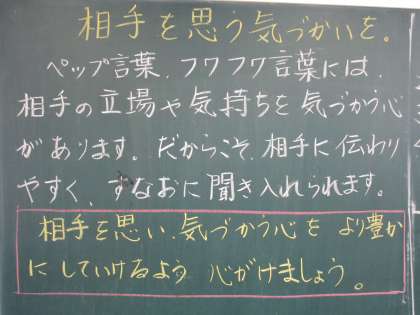 相手を思う気づかいを。
ペップ言葉、フワフワ言葉には、
相手の立場や気持ちを気づかう心
があります。だからこそ、相手に伝わり
やすく、すなおに聞き入れられます。
相手を思い、気づかう心を より豊か
にしていけるよう 心がけましょう。